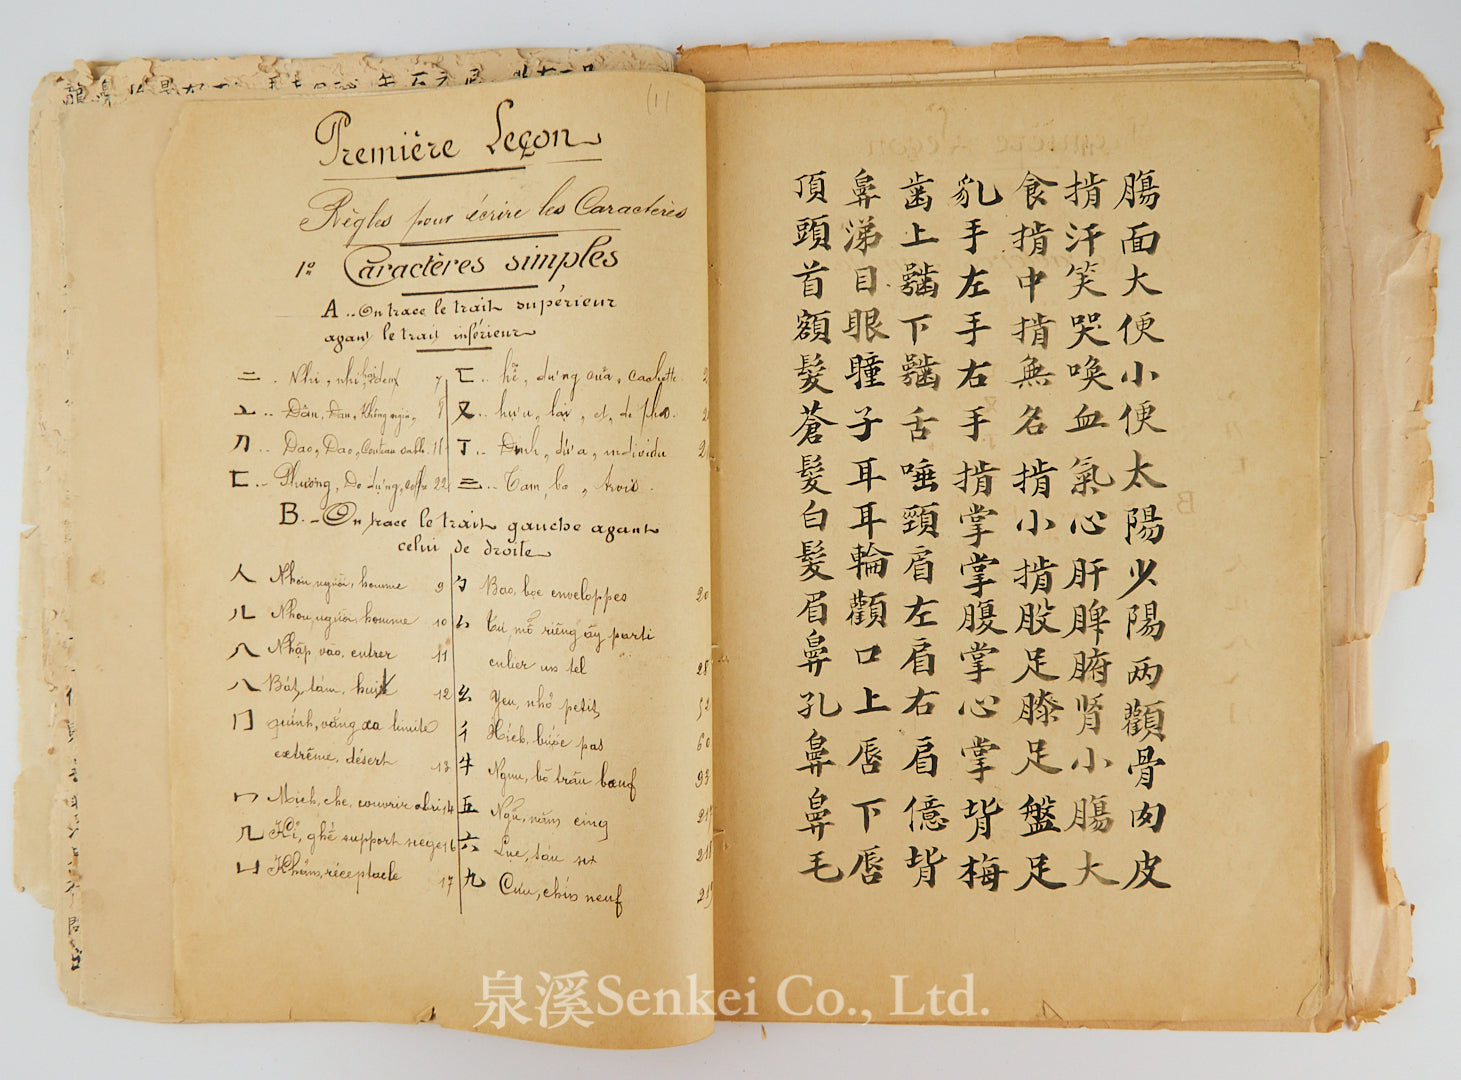 (1)
Première Leçon
Règles pour écrire les Caractères
1º Caractères simples
A .. On trace le trait supérieur
ayant le trait inférieur
二 . Nhi, nhi, deux 7
亠 .. Đầu, Đau, không nghĩa, 8
刀 .. Dao, Dao, Couteau sabl. 11
匚 .. Phương, Đo đựng, coffre 22
匸 .. hễ, đựng của, cachette
又 .. hựu, lại, et, de plus.
丁 .. Đinh, đứa, individu
三 .. Tam, ba, trois.
B. _ On trace le trait gauche ayant
celui de droite
人 Nhơn, người, homme 9
儿 Nhơn, người, homme 10
入 Nhập, vào, entrer 11
八 Bát, tám, huit 12
冂 quinh, vắng xa limite
extrême, désert 13
冖 Mich, che, couvrir abri 14
几 Kĩ, ghế support siege 16
凵 Khảm, réceptacle 17
勹 Bao, bọc enveloppes 20
厶 Tư, mỗ riêng ấy parti
culier un tel 28
幺 Yeu, nhỏ petit 52
彳 Xích, bước pas 60
牛 Ngưu, bò trâu bœuf 93
五 Ngũ, năm cinq
六 Lục, sáu six
九 Cửu, chín neuf
腸面大便小便太陽少陽两顴骨肉皮
掯汗笑哭喚血氣心肝脾腑腎小腸大
食掯中掯無名掯小掯股足膝足盤足
乳手左手右手掯掌掌腹掌心掌背梅
歯上齶下齶舌唾頸眉左肩右肩億背
鼻涕目眼瞳子耳耳輪顴口上唇下唇
頂頭首額髮蒼髮白髮眉鼻孔鼻鼻毛
泉溪Senkei Co., Ltd.